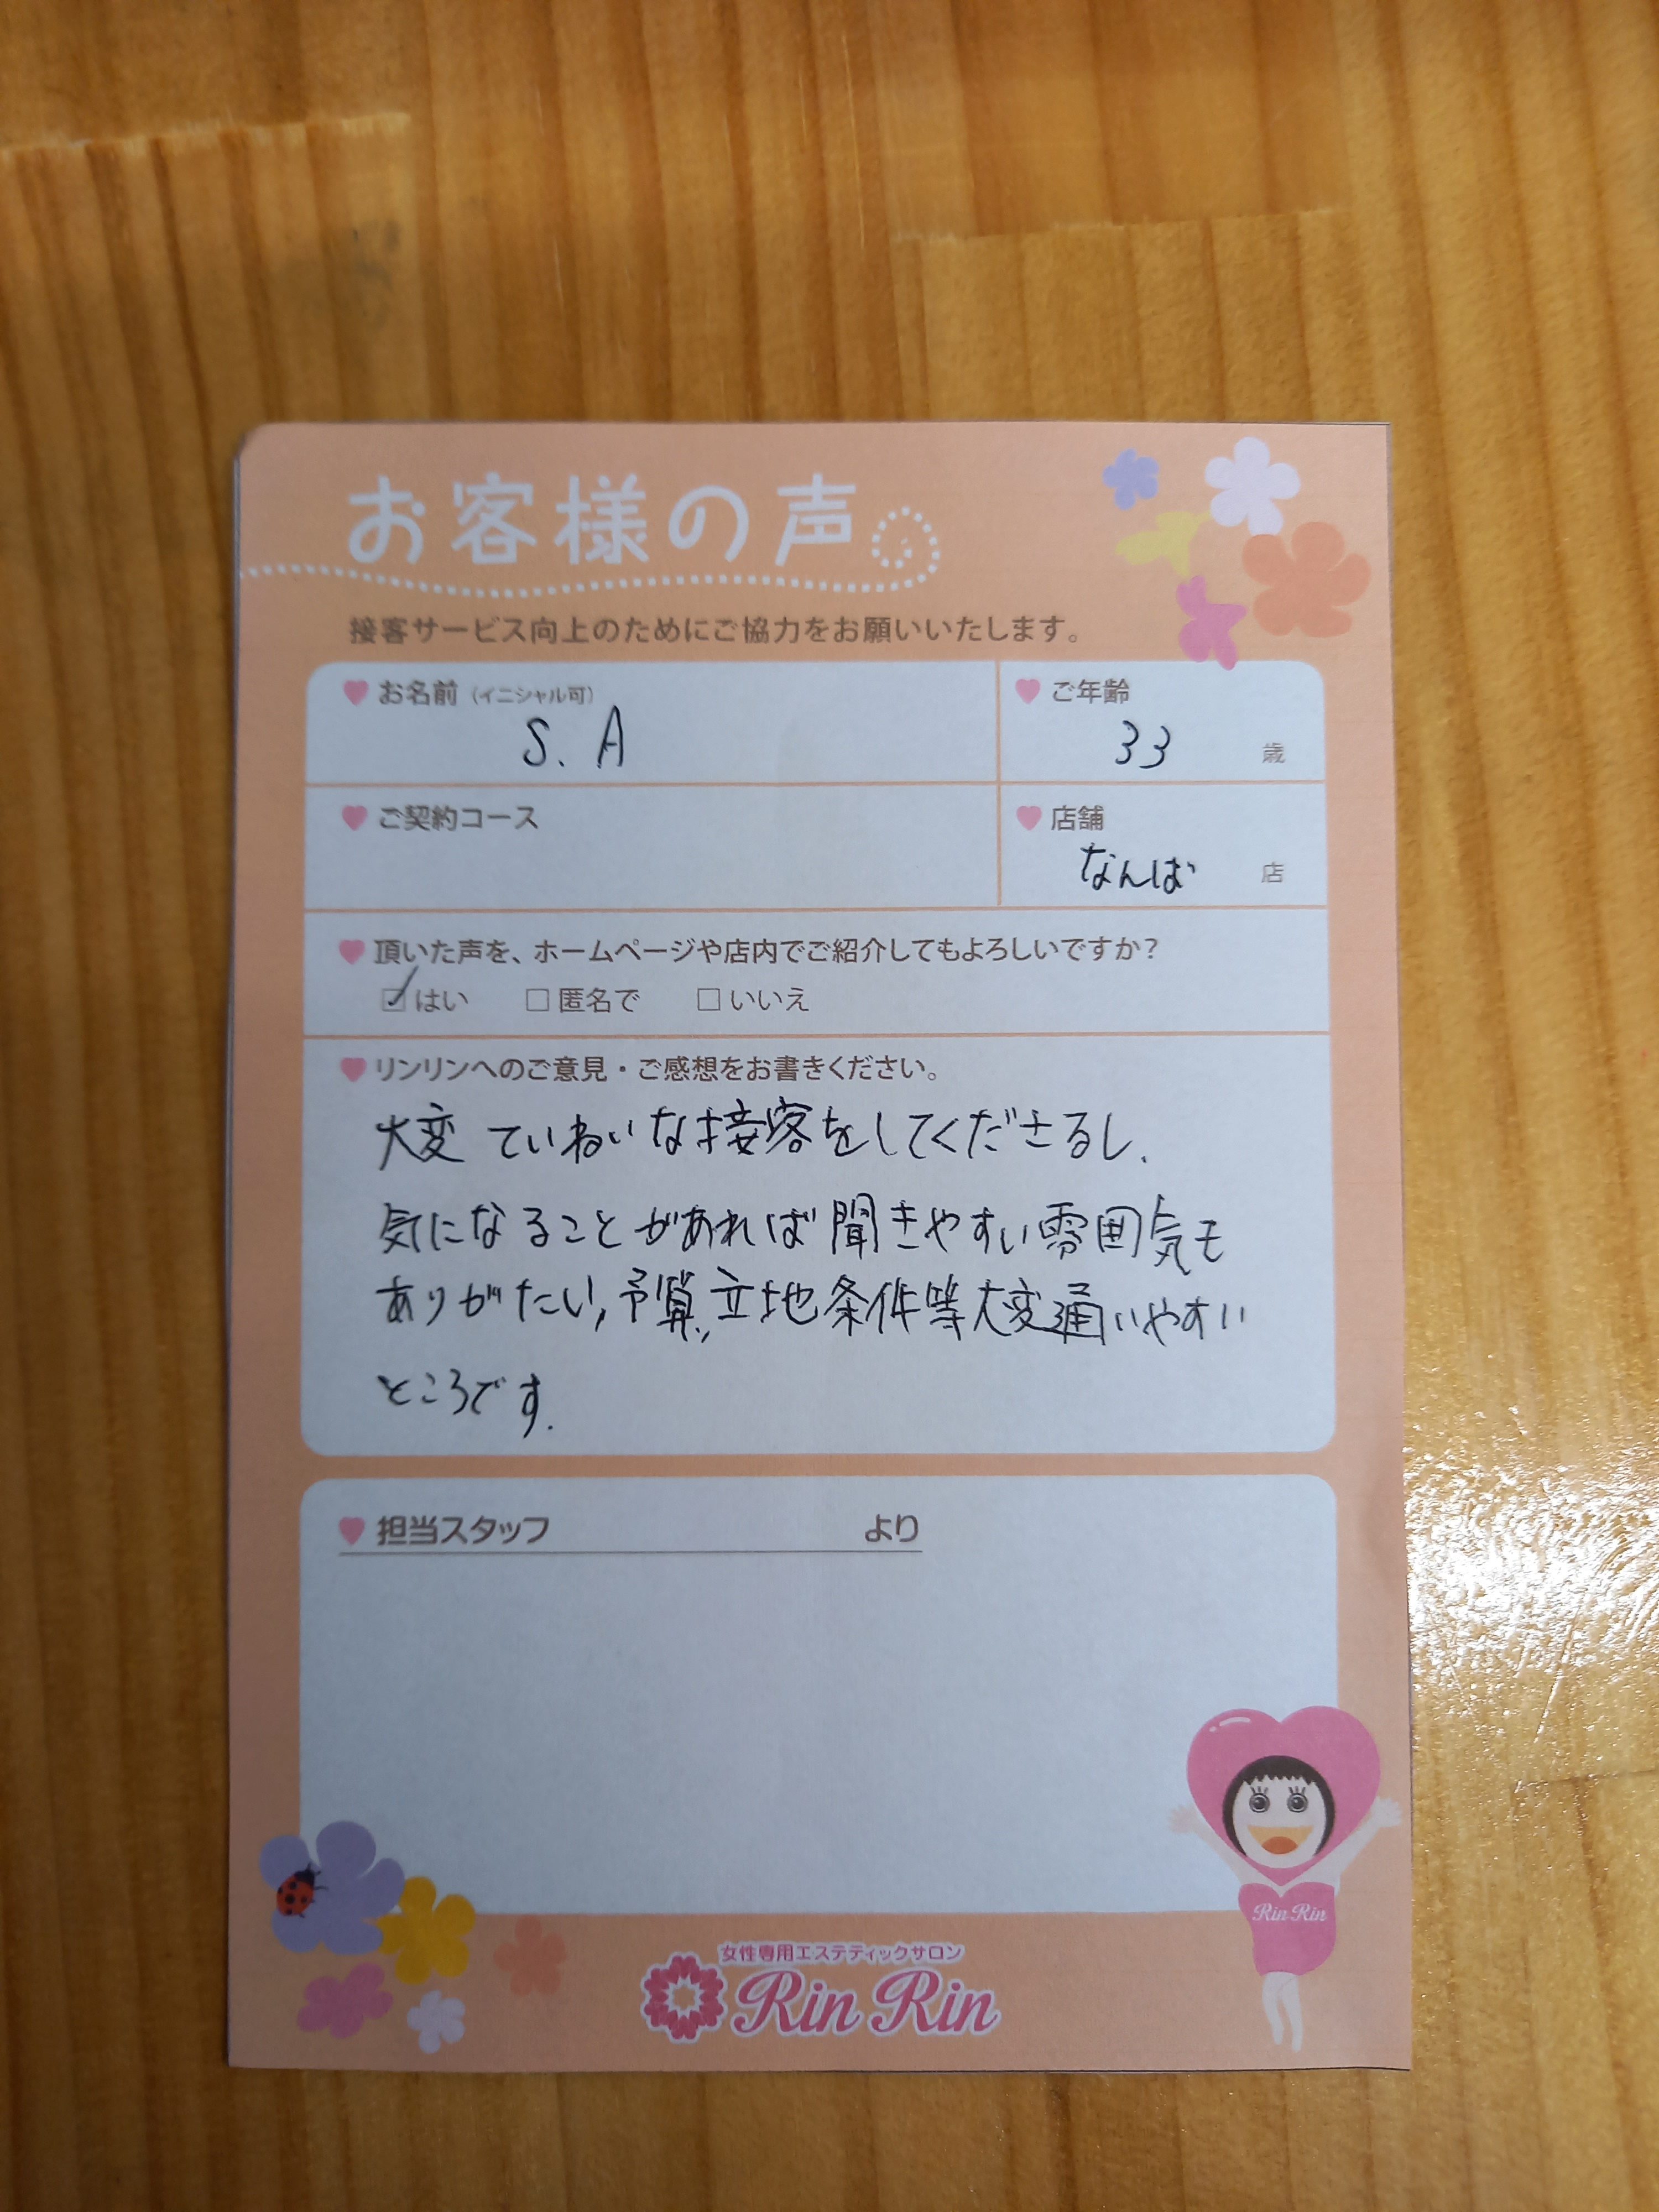 お客様の声
接客サービス向上のためにご協力をお願いいたします。
お名前（イニシャル可）
S. A
ご年齢
33 歳
ご契約コース
店舗
なんば 店
頂いた声を、ホームページや店内でご紹介してもよろしいですか？
☑はい □匿名で □いいえ
リンリンへのご意見・ご感想をお書きください。
大変 ていねいな接客をしてくださるし、
気になることがあれば聞きやすい雰囲気も
ありがたい、予算、立地条件等大変通いやすい
ところです.
担当スタッフ より
Rin Rin
女性専用エステティックサロン
Rin Rin